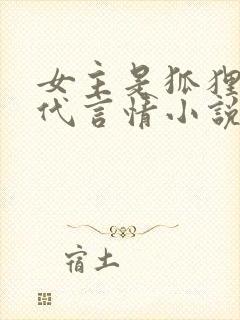 女主是狐狸
代言情小說
宿土